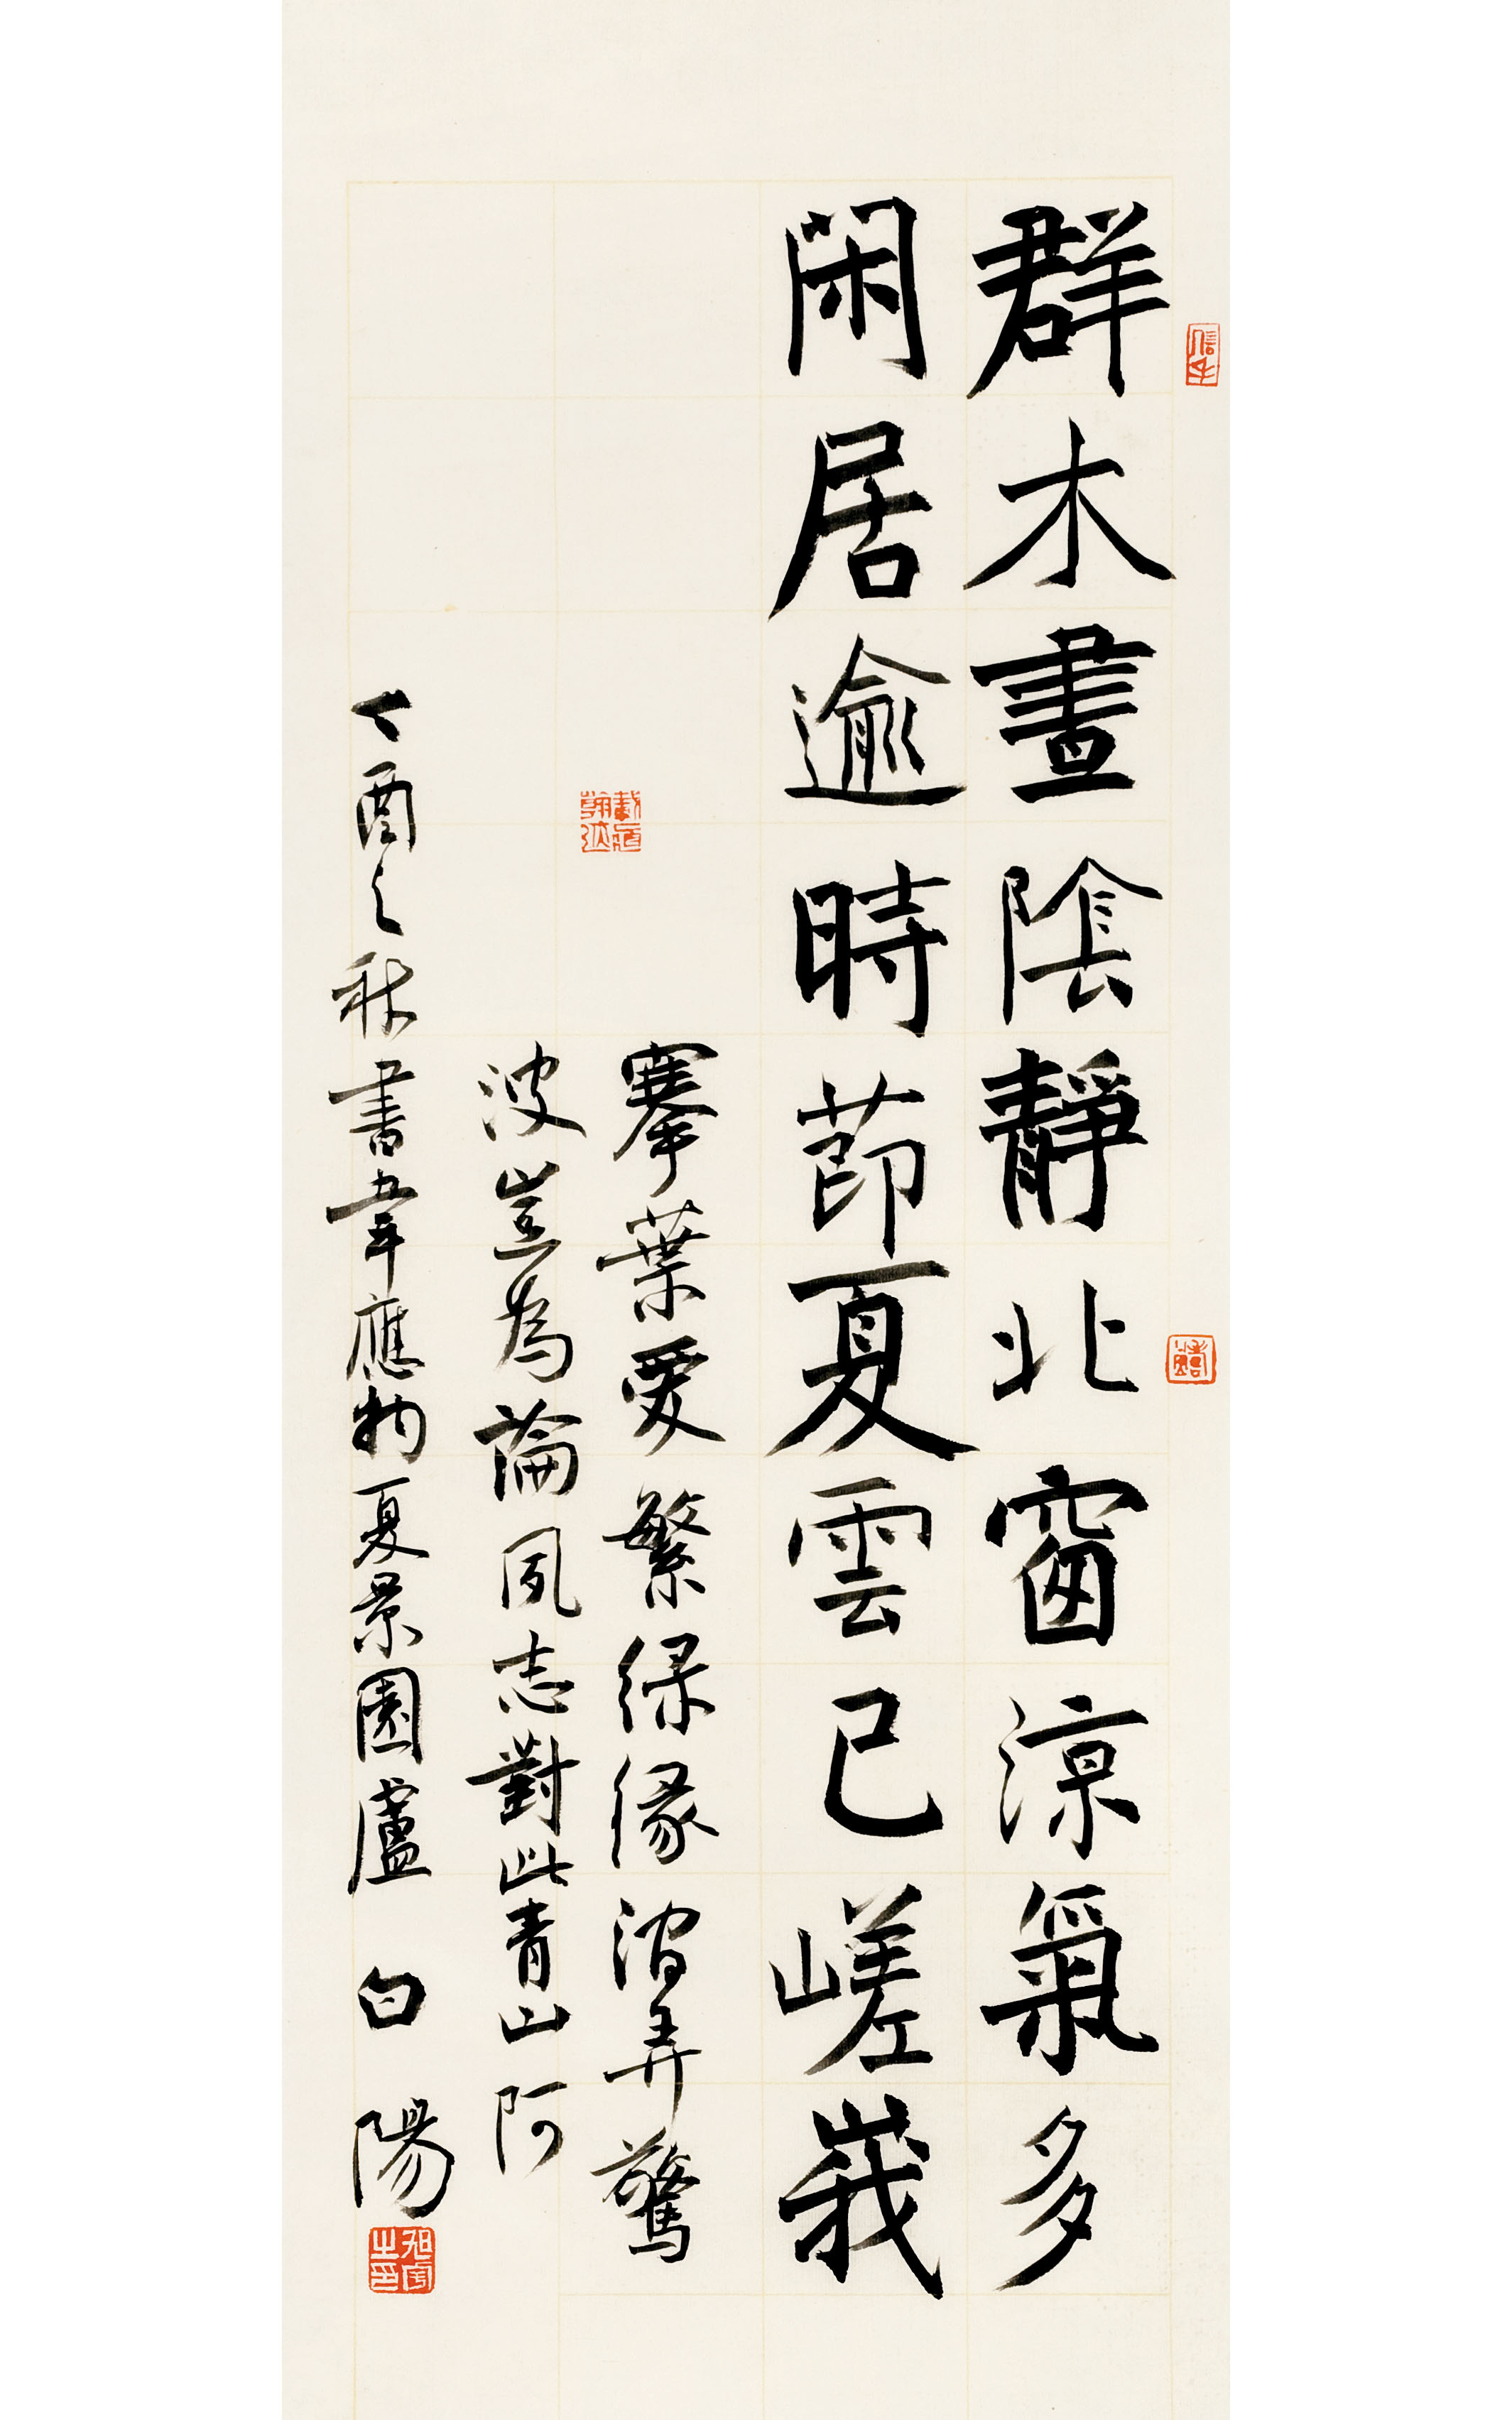 群木晝陰靜北窗涼氣多
閑居逾時節夏雲已嵯峨
搴葉愛繁緑緣澗弄驚
波豈為論夙志對此青山阿
丁酉之秋書韋應物夏景園廬 白陽